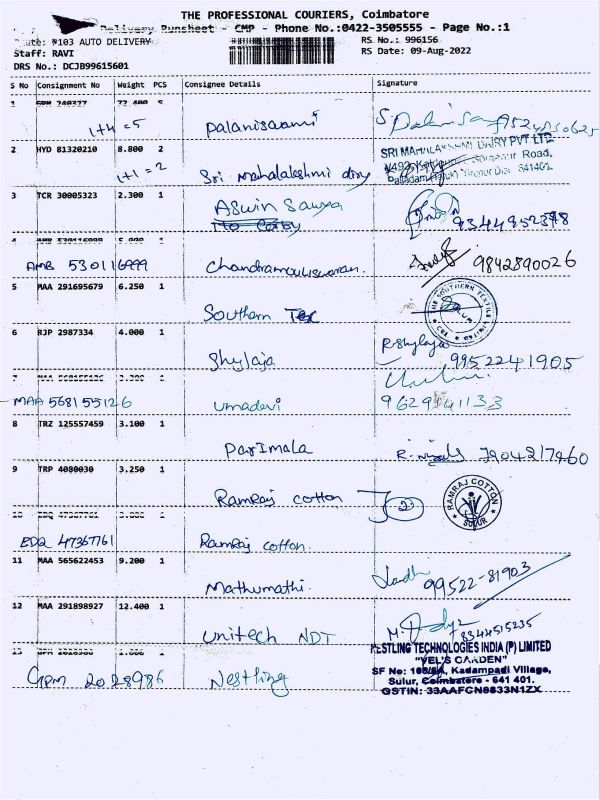 THE PROFESSIONAL COURIERS, Coimbatore
Delivery Runsheet - CMP - Phone No.:0422-3505555 - Page No.:1
Route: #103 AUTO DELIVERY
RS No.: 996156
Staff: RAVI
RS Date: 09-Aug-2022
DRS No.: DCJB99615601
S No Consignment No Weight PCS Consignee Details Signature
1 5
1+4=5 Palanisaami
2 HYD 81320210 8.800 2
SRI MAHALAKSHMI DAIRY PVT LTD
Road,
641401.
1+1=2 Sri mahalakshmi diry
3 TCR 30005323 2.300 1 Aswin Saurya
9344952378
4 AMB 530116999 5.000 1
AMB 530116999 Chandramouliswaran. 9842890026
5 MAA 291695679 6.250 1
Southern Tex
6 RJP 2987334 4.000 1
Shylaja R.shylaja 9952241905
7 1
MAA 568155126 umadevi
8 TRZ 125557459 3.100 1
Parimala 7904217460
9 TRP 4080030 3.250 1
Ramraj cotton 2
RAMRAJ COTTON
SULUR
10 1
EDQ 47367761 Ramraj cotton.
11 MAA 565622453 9.200 1
Mathumathi. 99522-81903
12 MAA 291898927 12.400 1
Unitech NDT 8344515235
13 1
GPM 2028986 Nestling
NESTLING TECHNOLOGIES INDIA (P) LIMITED
"VEL'S GARDEN"
Kadampadi Village,
Sulur, Coimbatore - 641 401.
GSTIN: 33AAFCN9833N1ZX